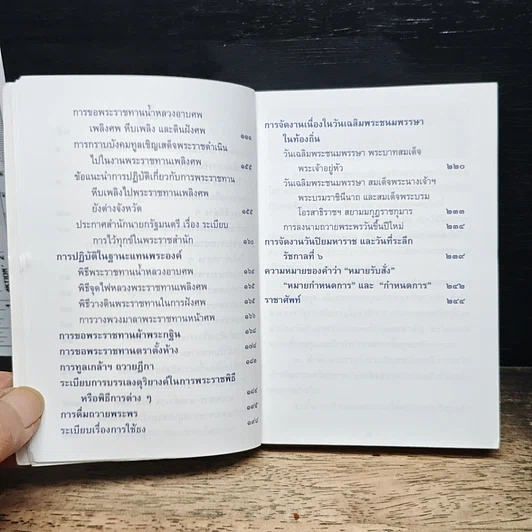 การขอพระราชทานน้ำหลวงอาบศพ
เพลิงศพ หีบเพลิง และดินฝังศพ ๑๑๑
การกราบบังคมทูลเชิญเสด็จพระราชดำเนิน
ไปในงานพระราชทานเพลิงศพ ๑๕๕
ข้อแนะนำการปฏิบัติเกี่ยวกับการพระราชทาน
หีบเพลิงไปพระราชทานเพลิงศพ
ยังต่างจังหวัด ๑๕๕
ประกาศสำนักนายกรัฐมนตรี เรื่อง ระเบียบ
การไว้ทุกข์ในพระราชสำนัก ๑๖๐
การปฏิบัติในฐานะแทนพระองค์
พิธีพระราชทานน้ำหลวงอาบศพ ๑๖๕
พิธีจุดไฟหลวงพระราชทานเพลิงศพ ๑๖๕
พิธีวางดินพระราชทานในการฝังศพ ๑๖๕
การวางพวงมาลาพระราชทานหน้าศพ ๑๖๖
การขอพระราชทานผ้าพระกฐิน ๑๖๘
การขอพระราชทานตราตั้งห้าง ๑๗๘
การทูลเกล้าฯ ถวายฎีกา ๑๘๑
ระเบียบการบรรเลงดุริยางค์ในการพระราชพิธี
หรือพิธีการต่าง ๆ ๑๘๔
การดื่มถวายพระพร ๑๙๕
ระเบียบเรื่องการใช้ธง ๑๙๘
การจัดงานเนื่องในวันเฉลิมพระชนมพรรษา
ในท้องถิ่น
วันเฉลิมพระชนมพรรษา พระบาทสมเด็จ
พระเจ้าอยู่หัว ๒๒๐
วันเฉลิมพระชนมพรรษา สมเด็จพระนางเจ้าฯ
พระบรมราชินีนาถ และสมเด็จพระบรม
โอรสาธิราชฯ สยามมกุฎราชกุมาร ๒๓๓
การลงนามถวายพระพรวันขึ้นปีใหม่ ๒๓๔
การจัดงานวันปิยมหาราช และวันที่ระลึก
รัชกาลที่ ๖ ๒๓๙
ความหมายของคำว่า “หมายรับสั่ง”
“หมายกำหนดการ” และ “กำหนดการ” ๒๔๒
ราชาศัพท์ ๒๔๔